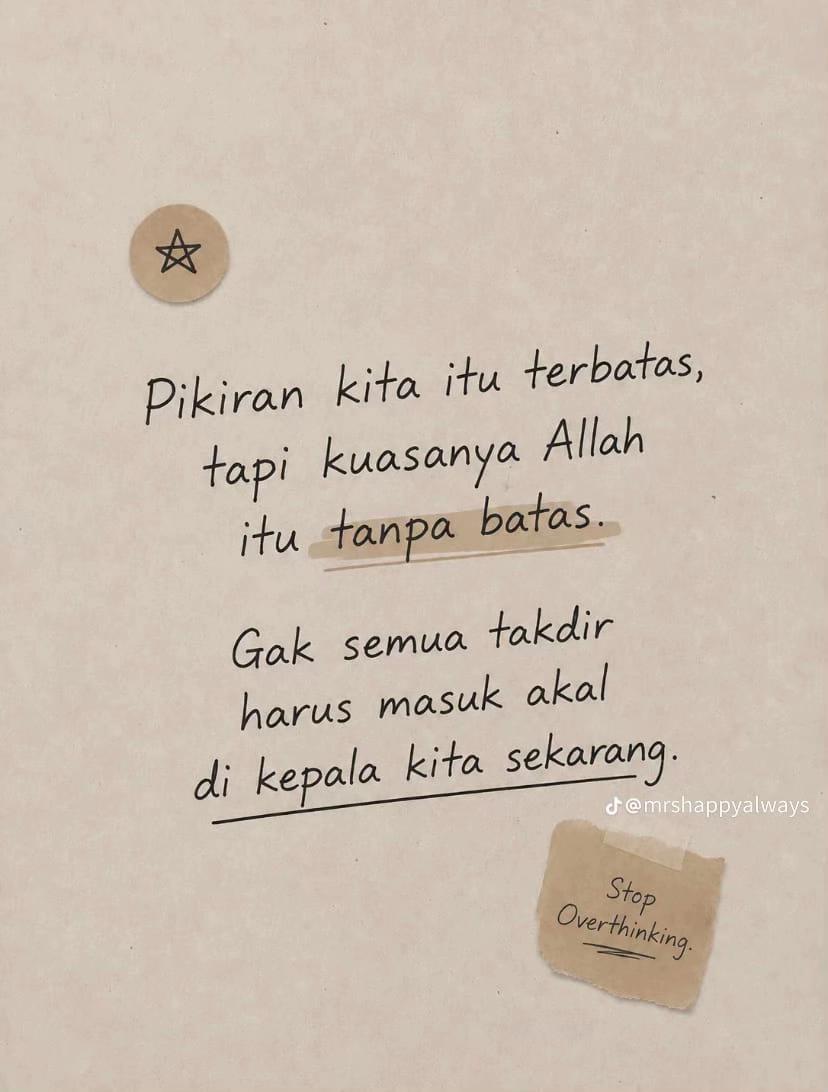 Pikiran kita itu terbatas,
tapi kuasanya Allah
itu tanpa batas.
Gak semua takdir
harus masuk akal
di kepala kita sekarang.
@mrshappyalways
Stop
Overthinking.